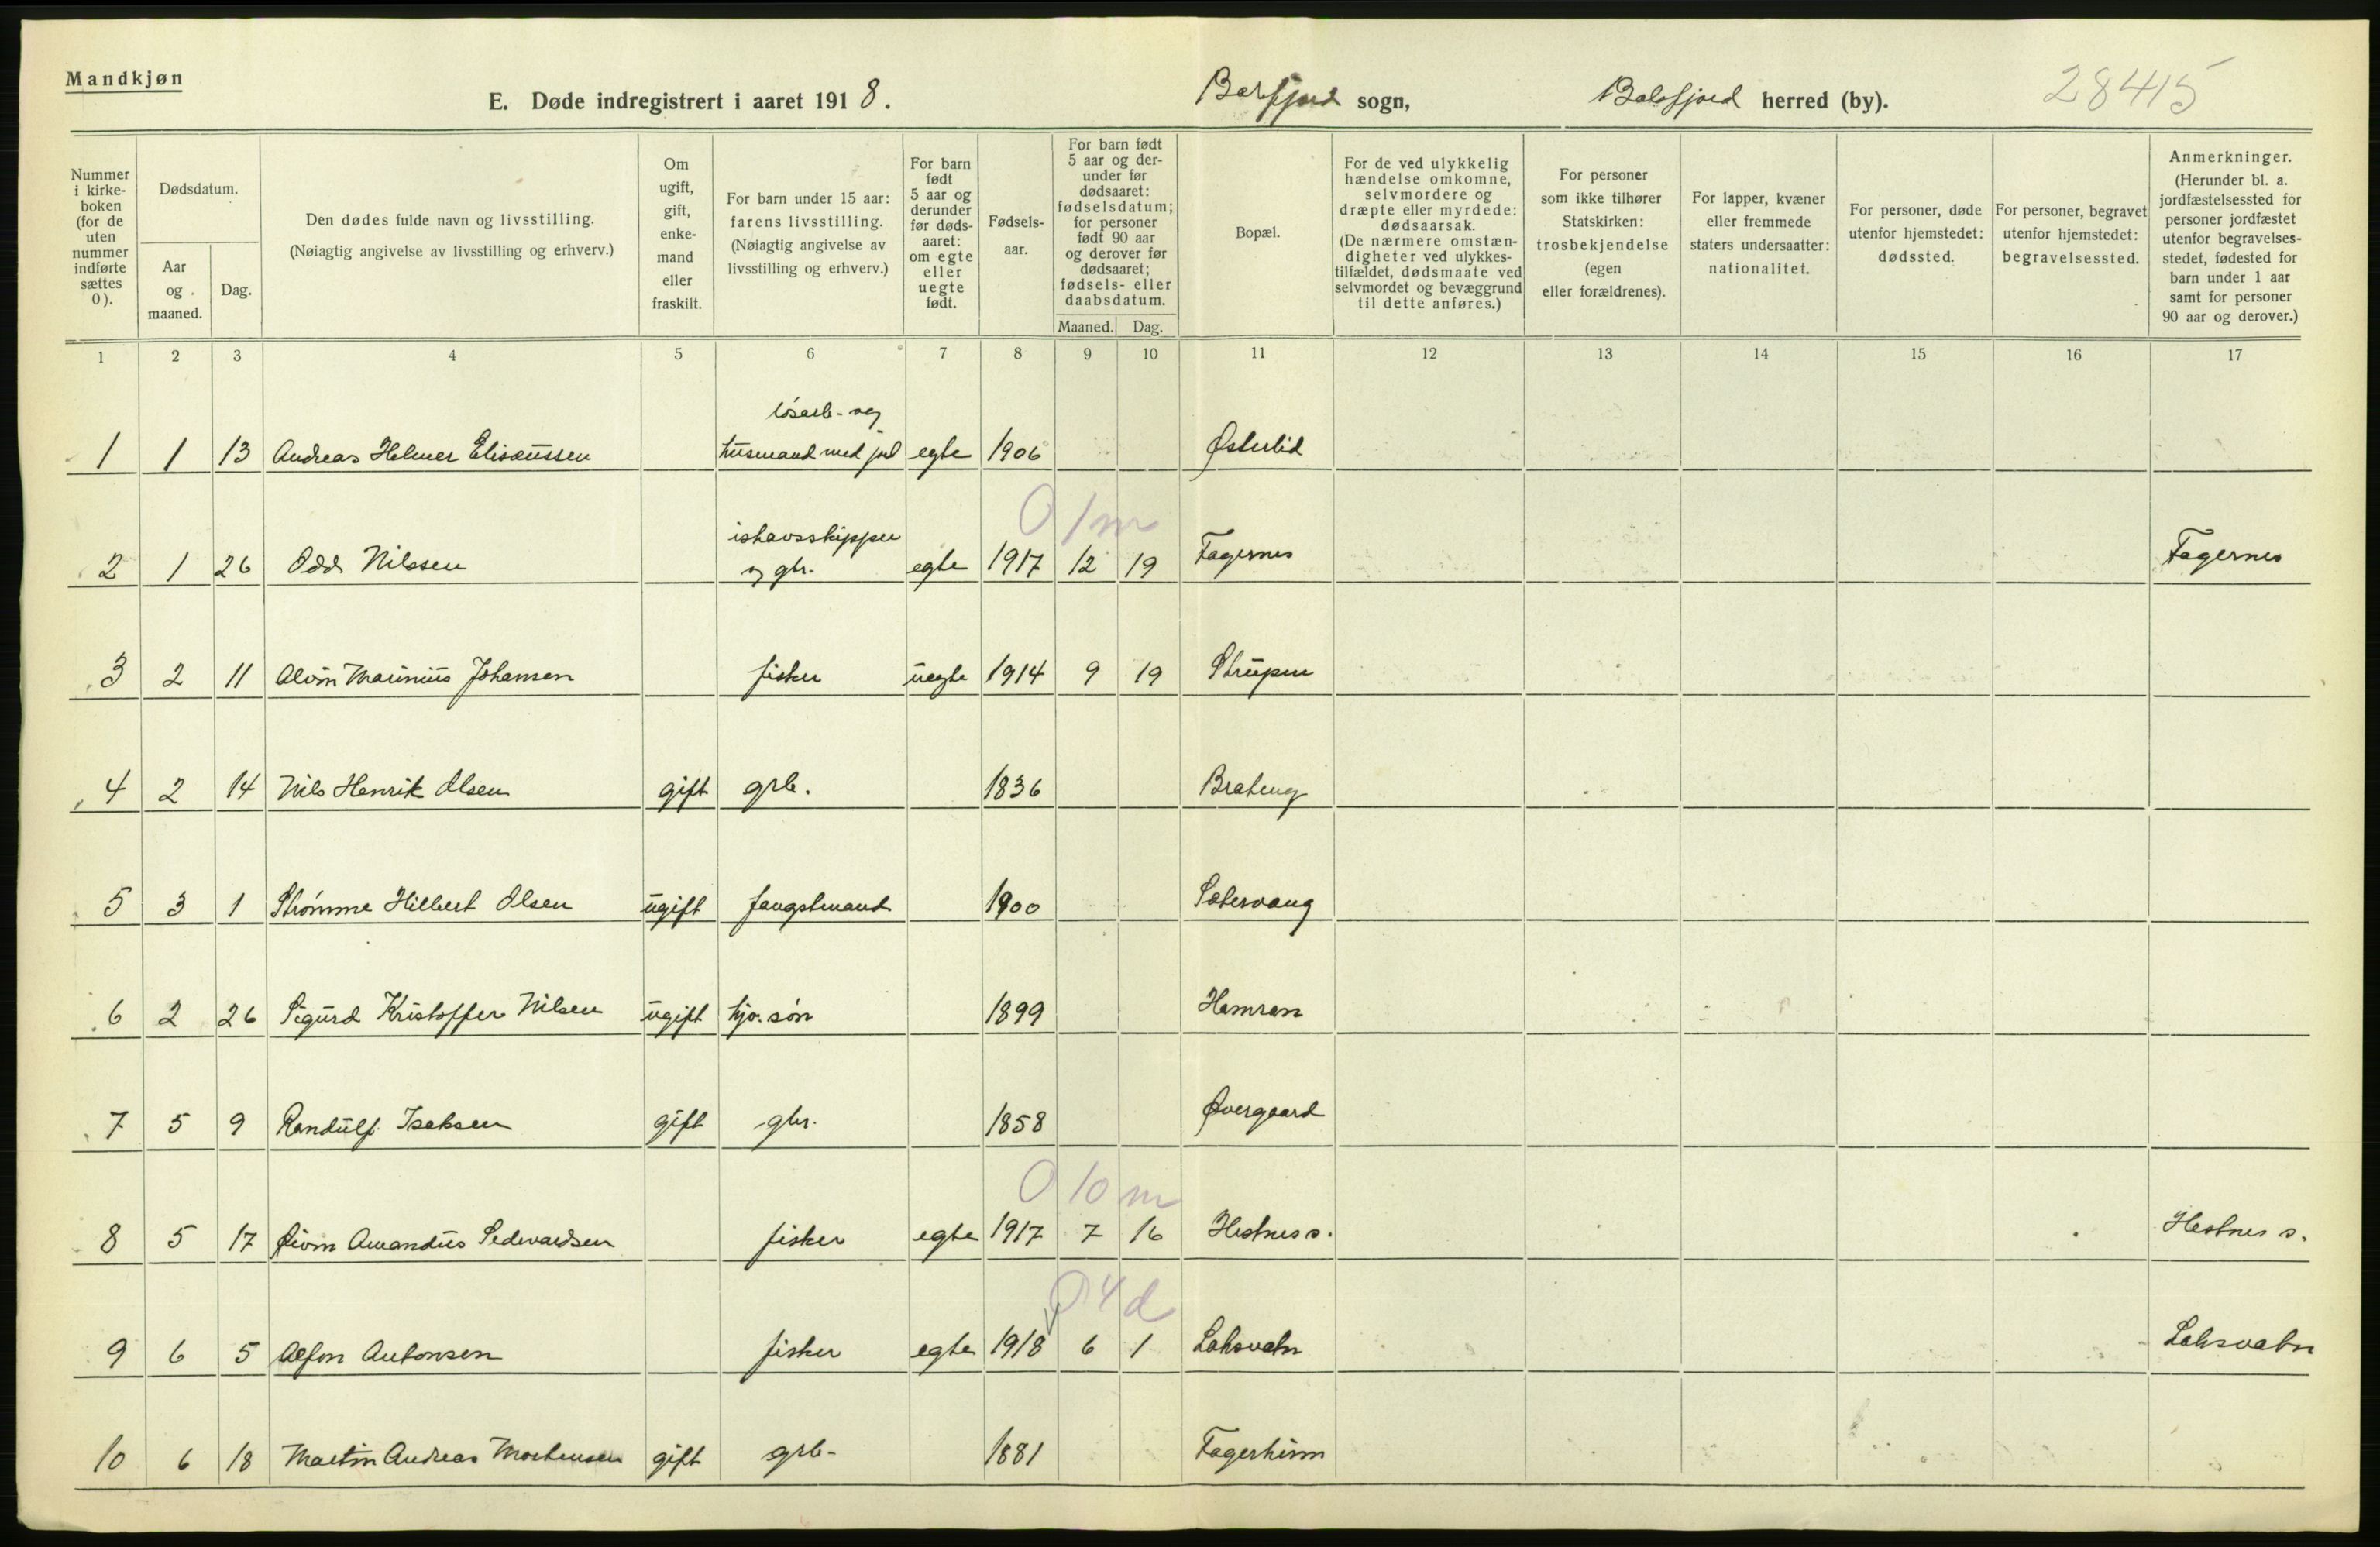 Mandkjøn
E. Døde indregistrert i aaret 1918. Balsfjord sogn, Balsfjord herred (by). 28415
Nummer i kirkeboken (for de uten nummer indførte sættes 0).
Dødsdatum.
Aar og maaned.
Dag.
Den dødes fulde navn og livsstilling.
(Nøiagtig angivelse av livsstilling og erhverv.)
Om ugift, gift, enkemand eller fraskilt.
For barn under 15 aar: farens livsstilling. (Nøiagtig angivelse av livsstilling og erhverv.)
For barn født 5 aar og derunder før dødsaaret: om egte eller uegte født.
Fødselsaar.
For barn født 5 aar og derunder før dødsaaret: fødselsdatum; for personer født 90 aar og derover før dødsaaret; fødsels- eller daabsdatum.
Maaned. Dag.
Bopæl.
For de ved ulykkelig hændelse omkomne, selvmordere og dræpte eller myrdede: dødsaarsak. (De nærmere omstændigheter ved ulykkestilfældet, dødsmaate ved selvmordet og bevæggrund til dette anføres.)
For personer som ikke tilhører Statskirken: trosbekjendelse (egen eller forældrenes).
For lapper, kvæner eller fremmede staters undersaatter: nationalitet.
For personer, døde utenfor hjemstedet: dødssted.
For personer, begravet utenfor hjemstedet: begravelsessted.
Anmerkninger. (Herunder bl. a. jordfæstelsessted for personer jordfæstet utenfor begravelsesstedet, fødested for barn under 1 aar samt for personer 90 aar og derover.)
1 2 3 4 5 6 7 8 9 10 11 12 13 14 15 16 17
løsarb. og
1 1 13 Andreas Helmer Elisæussen husmand med jord egte 1906 Østerlid
0 1 m
ishavsskipper
2 1 26 Odd Nilssen og gbr. egte 1917 12 19 Fagernes Fagernes
3 2 11 Alvin Marinius Johansen fisker uegte 1914 9 19 Strupen
4 2 14 Nils Henrik Olsen gift grb. 1836 Brateng
5 3 1 Strømme Hilbert Olsen ugift fangstmand 1900 Sætervang
6 2 26 Sigurd Kristoffer Nilsen ugift hjv. søn 1899 Hamran
7 5 9 Randulf Isaksen gift gbr. 1858 Øvergaard
0 10 m
8 5 17 Eivin Amandus Sedvardsen fisker egte 1917 7 16 Hestnes s. Hestnes s.
0 4 d
9 6 5 Alfon Antonsen fisker egte 1918 6 1 Laksvatn Laksvatn
10 6 18 Martin Andreas Mortensen gift grb. 1881 Fagerheim